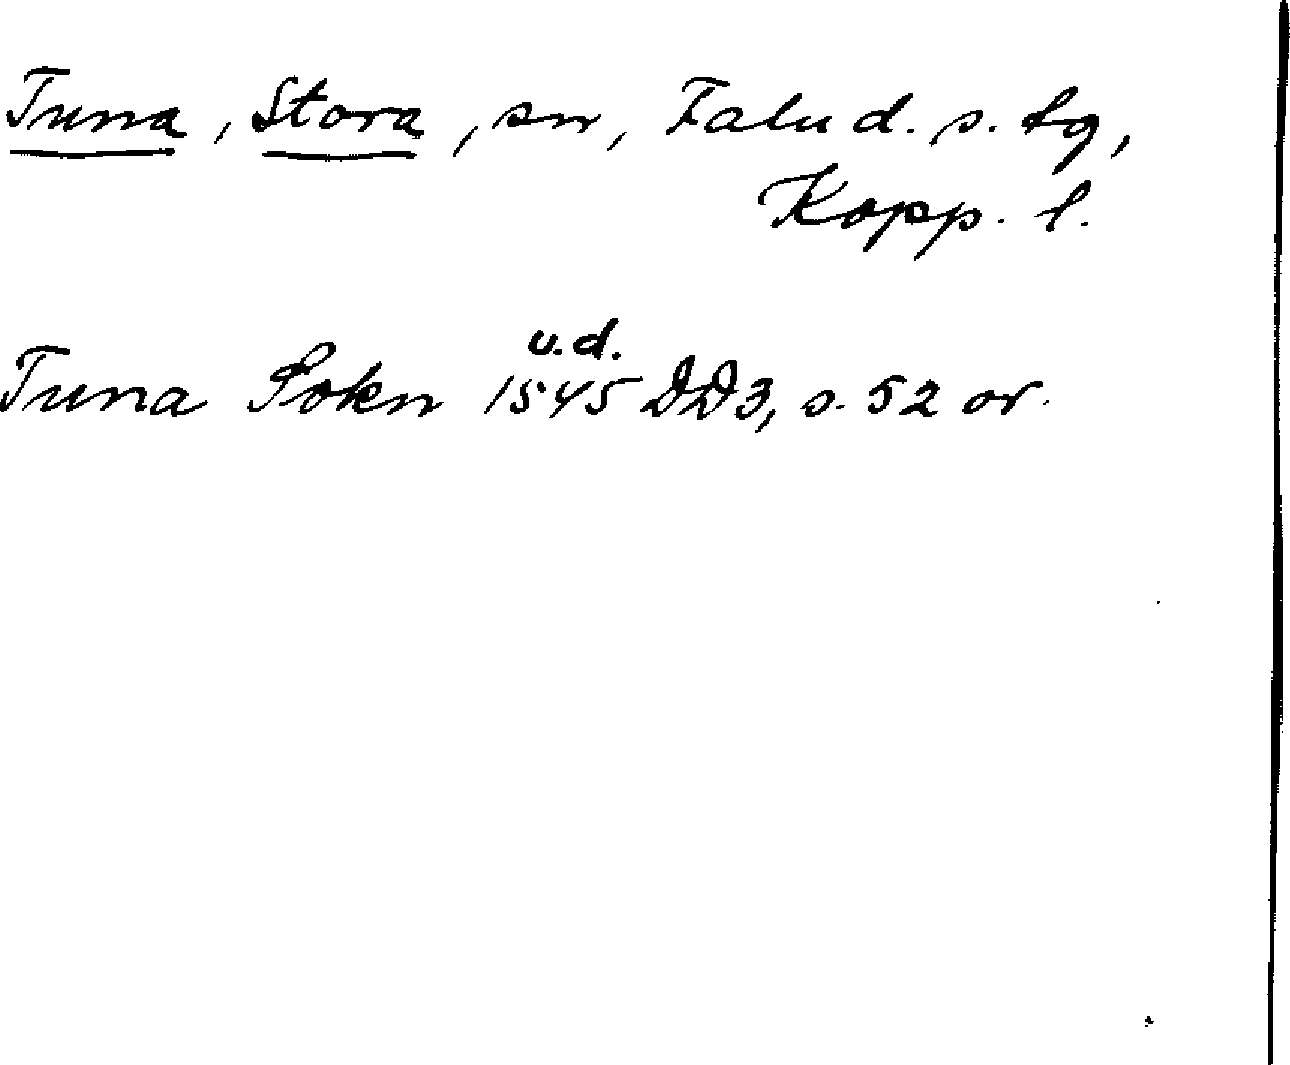 Tuna, Stora, sn, Falu d. s. tg,
Kopp. l.
u.d.
Tuna Sokn 1545 DD3, s. 52 or.